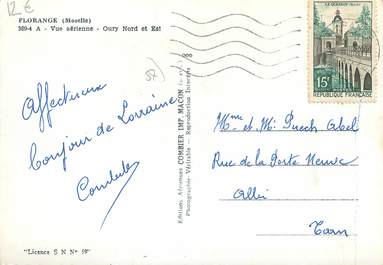 12€
FLORANGE (Moselle)
369-4 A - Vue aérienne - Oury Nord et Est
57)
LE QUESNOY (Nord)
15F
REPUBLIQUE FRANÇAISE
Affectueux
bonjour de Lorraine
Editions Aériennes COMBIER IMP. MACON
Photographie Véritable - Reproduction Interdite
Mme et Mr Puech Abel
Rue de la Porte Neuve
Albi
Tarn
"Licence S N N° 59"